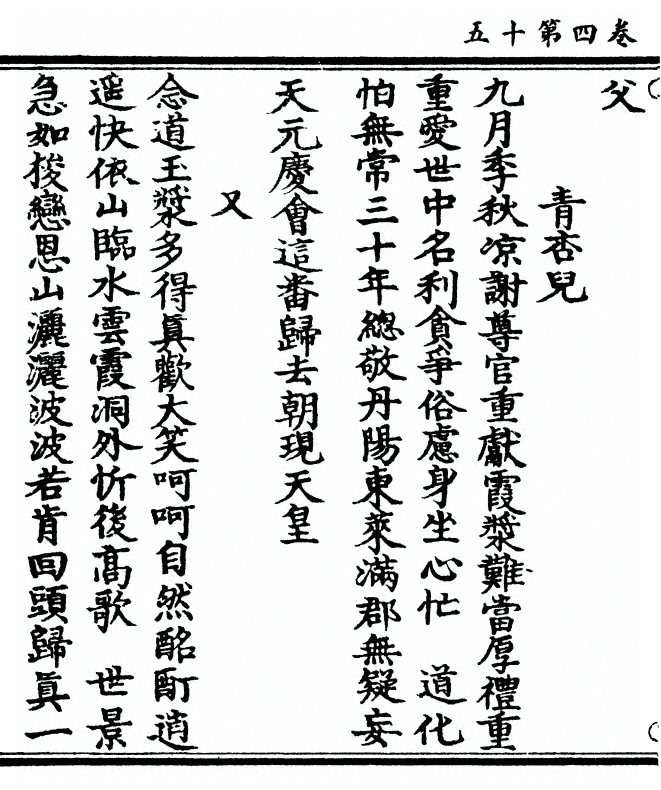 五十第四卷
父
青杏兒
九月季秋凉謝尊官重獻霞漿難當厚禮重
重愛世中名利貪爭俗慮身坐心忙　道化
怕無常三十年總敬丹陽東萊滿郡無疑妄
天元慶會這番歸去朝現天皇
又
念道玉漿多得眞歡大笑呵呵自然酩酊逍
遥快依山臨水雲霞洞外忻後高歌　世景
急如梭戀恩山灑灑波波若肯回頭歸眞一